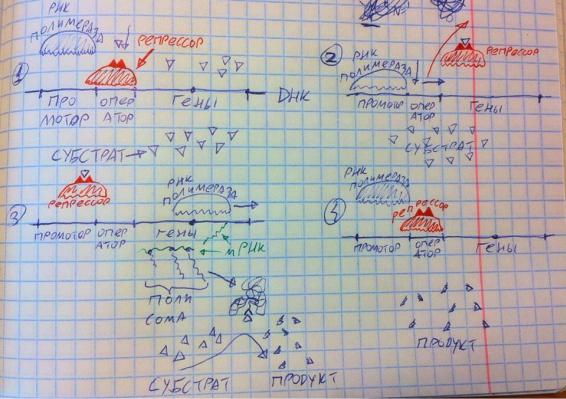 РНК
ПОЛИМЕРАЗА
РЕПРЕССОР
1
ПРО
МОТОР
ОПЕР
АТОР
ГЕНЫ
ДНК
СУБСТРАТ
2
РНК
ПОЛИМЕРАЗА
РЕПРЕССОР
ПРОМОТОР
ОПЕР
АТОР
ГЕНЫ
СУБСТРАТ
3
РЕПРЕССОР
РНК
ПОЛИМЕРАЗА
ПРОМОТОР
ОПЕР
АТОР
ГЕНЫ
мРНК
ПОЛИ
СОМА
СУБСТРАТ
ПРОДУКТ
4
РНК
ПОЛИМЕРАЗА
РЕПРЕССОР
ПРОМОТОР
ОПЕР
АТОР
ГЕНЫ
ПРОДУКТ